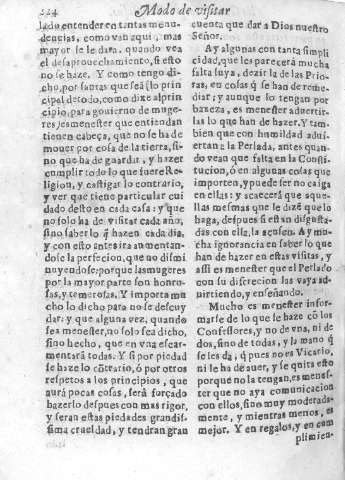 224
Modo de visitar
lado entender en tantas menu-
dencias, como van aqui, mas
mayor se le dara, quando vea
el desaprouechamiento, si esto
no se haze. Y como tengo di-
cho, por santas que seã (lo prin
cipal de todo, como dixe al prin
cipio, para gouierno de muge-
res) es menester que entiendan
tienen cabeça, que no se ha de
mouer por cosa de la tierra, si-
no que ha de guardar, y hazer
cumplir todo lo que fuere Re-
ligion, y castigar lo contrario,
y ver que tiene particular cui
dado desto en cada casa: y que
no solo ha de visitar cada año,
sino saber lo q̃ hazen cada dia,
y con esto antes ira aumentan-
dose la perfecion, que no dismi
nuyendose: porque las mugeres
por la mayor parte son honro-
sas, y temerosas. Y importa mu
cho lo dicho para no se descuy
dar: y que alguna vez, quando
sea menester, no solo sea dicho,
sino hecho, que en vna escar-
mentarã todas. Y si por piedad
se haze lo cõtrario, ò por otros
respetos a los principios, que
aurà pocas cosas, serà forçado
hazerlo despues con mas rigor,
y seran estas piedades grandis-
sima crueldad, y tendran gran
cuenta que dar a Dios nuestro
Señor.
Ay algunas con tanta simpli
cidad, que les parecerà mucha
falta suya, dezir la de las Prio-
ras, en cosas q̃ se han de reme-
diar: y aunque lo tengan por
baxeza, es menester aduertir-
las lo que han de hazer. Y tam-
bien que con humildad aduier
tan a la Perlada, antes quan-
do vean que falta en la Consti-
tucion, ò en algunas cosas que
importen, y puede ser no caiga
en ellas: y acaecerà que aque-
llas mesmas que le dizẽ que lo
haga, despues si estan disgusta-
das con ella, la acusen. Ay mu-
cha ignorancia en saber lo que
han de hazer en estas visitas, y
assi es menester que el Perlado
con su discrecion las vaya ad-
uirtiendo, y enseñando.
Mucho es menester infor-
marse de lo que se haze cõ los
Confessores, y no de vna, ni de
dos, sino de todas, y la mano q̃
se les da, q̃ pues no es Vicario,
ni le ha de auer, y se quita esto
porque no la tengan, es menes-
ter que no aya comunicacion
con ellos, sino muy moderada-
mente, y mientras menos, es
mejor. Y en regalos, y en com
plimien-